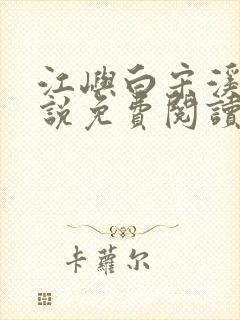 江嶼白宋溪
說免費閱讀
卡蘿尔